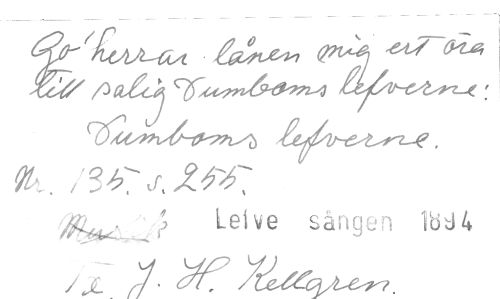 Go' herrar lånen mig ert öra
till salig Dumboms lefverne:
Dumboms lefverne.
Nr. 135. s. 255.
Musik Lefve sången 1894
Te. J. H. Kellgren.